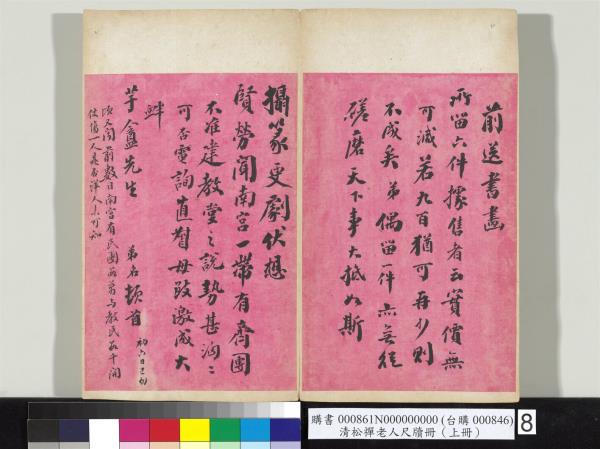 前送書畫
所留六件據售者云實價無
可減若九百猶可再少則
不成矣弟偶留一件亦無從
磋磨天下事大抵如斯
攝篆更劇伏想
賢勞聞南宮一帶有齊團
不准建教堂之說勢甚洶〻
可否電詢直督毋致激成大
衅
芋盦先生 弟名頓首 初六日巳刻
又聞前數日南宮有民團兩萬与教民數千開
仗傷一人是否洋人未可知
購書 000861N000000000 (台購 000846)
清松禪老人尺牘冊（上冊）
8